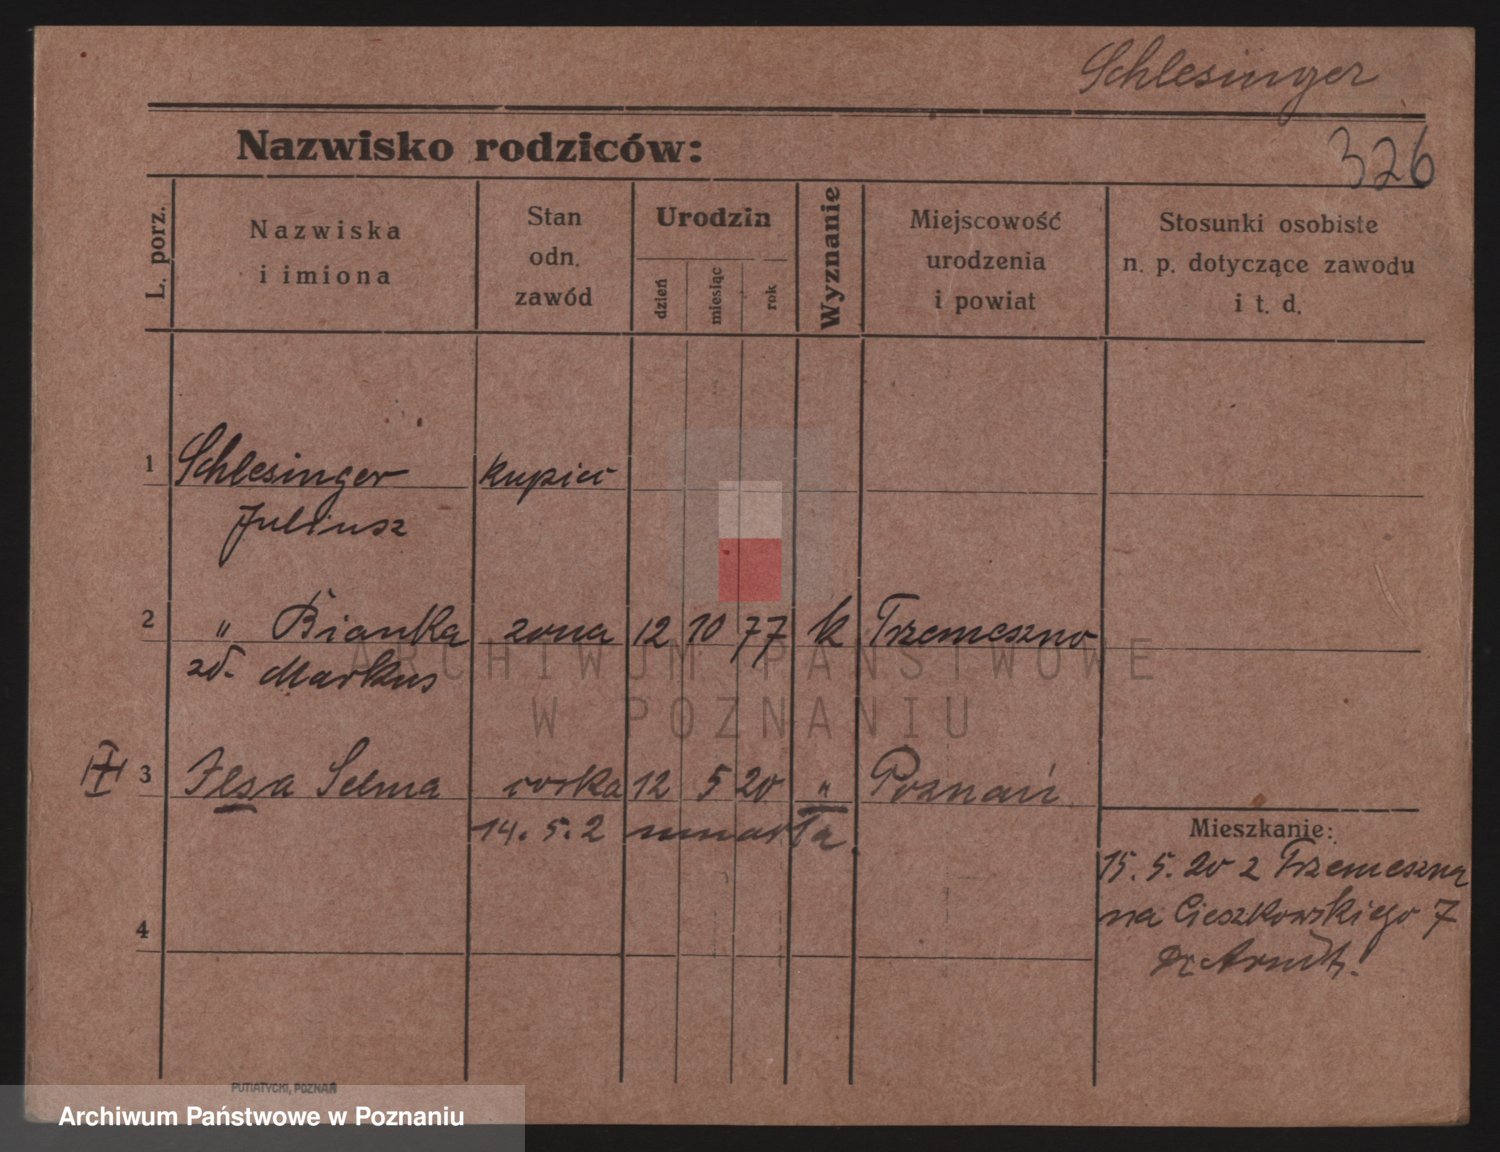 Schlesinger
Nazwisko rodziców:
326
L. porz.
Nazwiska
i imiona
Stan
odn.
zawód
Urodzin
dzień
miesiąc
rok
Wyznanie
Miejscowość
urodzenia
i powiat
Stosunki osobiste
n. p. dotyczące zawodu
i t. d.
1 Schlesinger kupiec
Juliusz
2 " Bianka żona 12 10 77 k Trzemeszno
zd. Markus
3 Ilsa Selma córka 12 5 20 " Poznań
14. 5. 2 umarła
Mieszkanie:
15. 5. 20 z Trzemeszna
na Cieszkowskiego 7
Dr Arndt.
4
ARCHIWUM PAŃSTWOWE
W POZNANIU
PUTIATYCKI, POZNAŃ
Archiwum Państwowe w Poznaniu